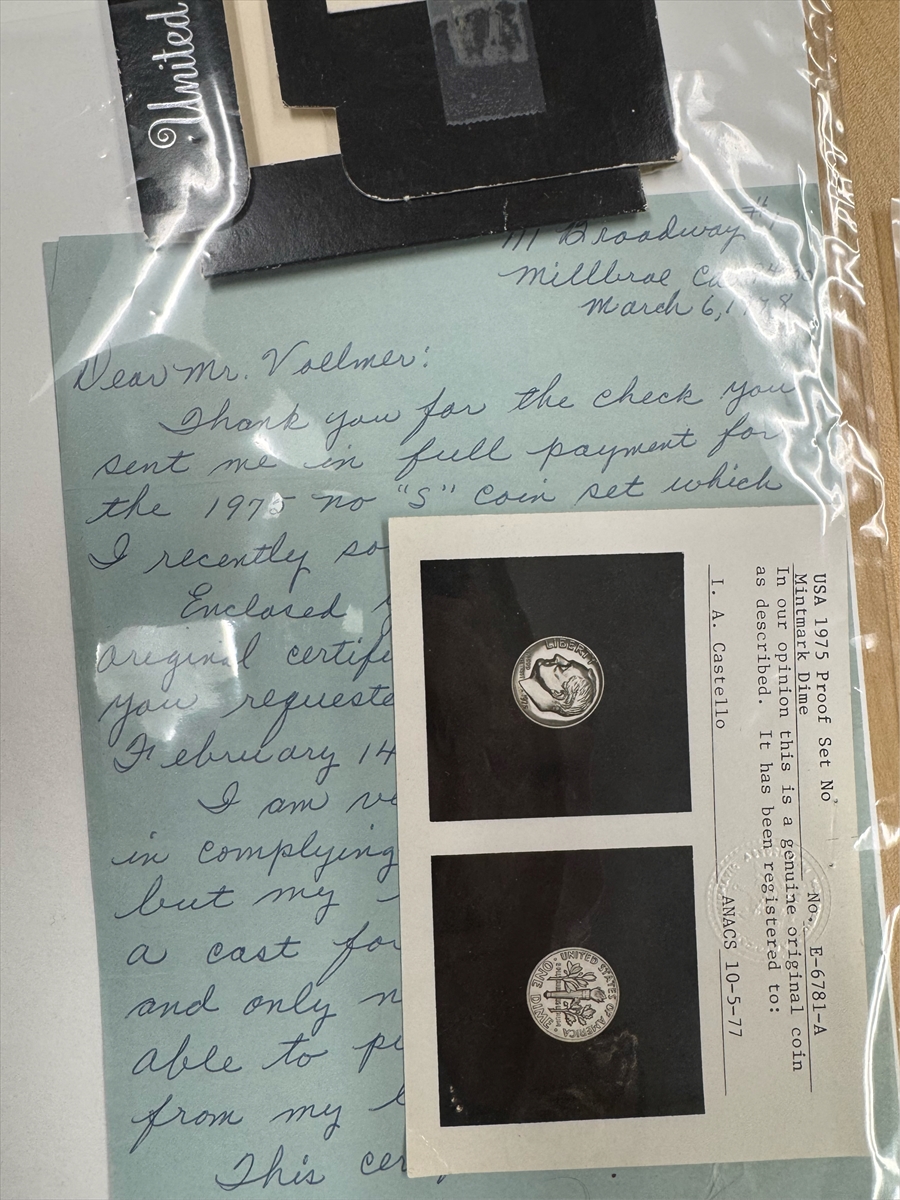 United
Broadway #1
Millbrae Ca
March 6, 1978
Dear Mr. Vollmer:
Thank you for the check you
sent me in full payment for
the 1975 no "S" coin set which
I recently so
Enclosed
original certifi
you requeste
February 14
I am ve
in complying
but my
a cast for
and only
able to
from my
This cer
USA 1975 Proof Set No
Mintmark Dime No. E-6781-A
In our opinion this is a genuine original coin
as described. It has been registered to:
I. A. Castello ANACS 10-5-77
LIBERTY
UNITED STATES OF AMERICA
ONE DIME